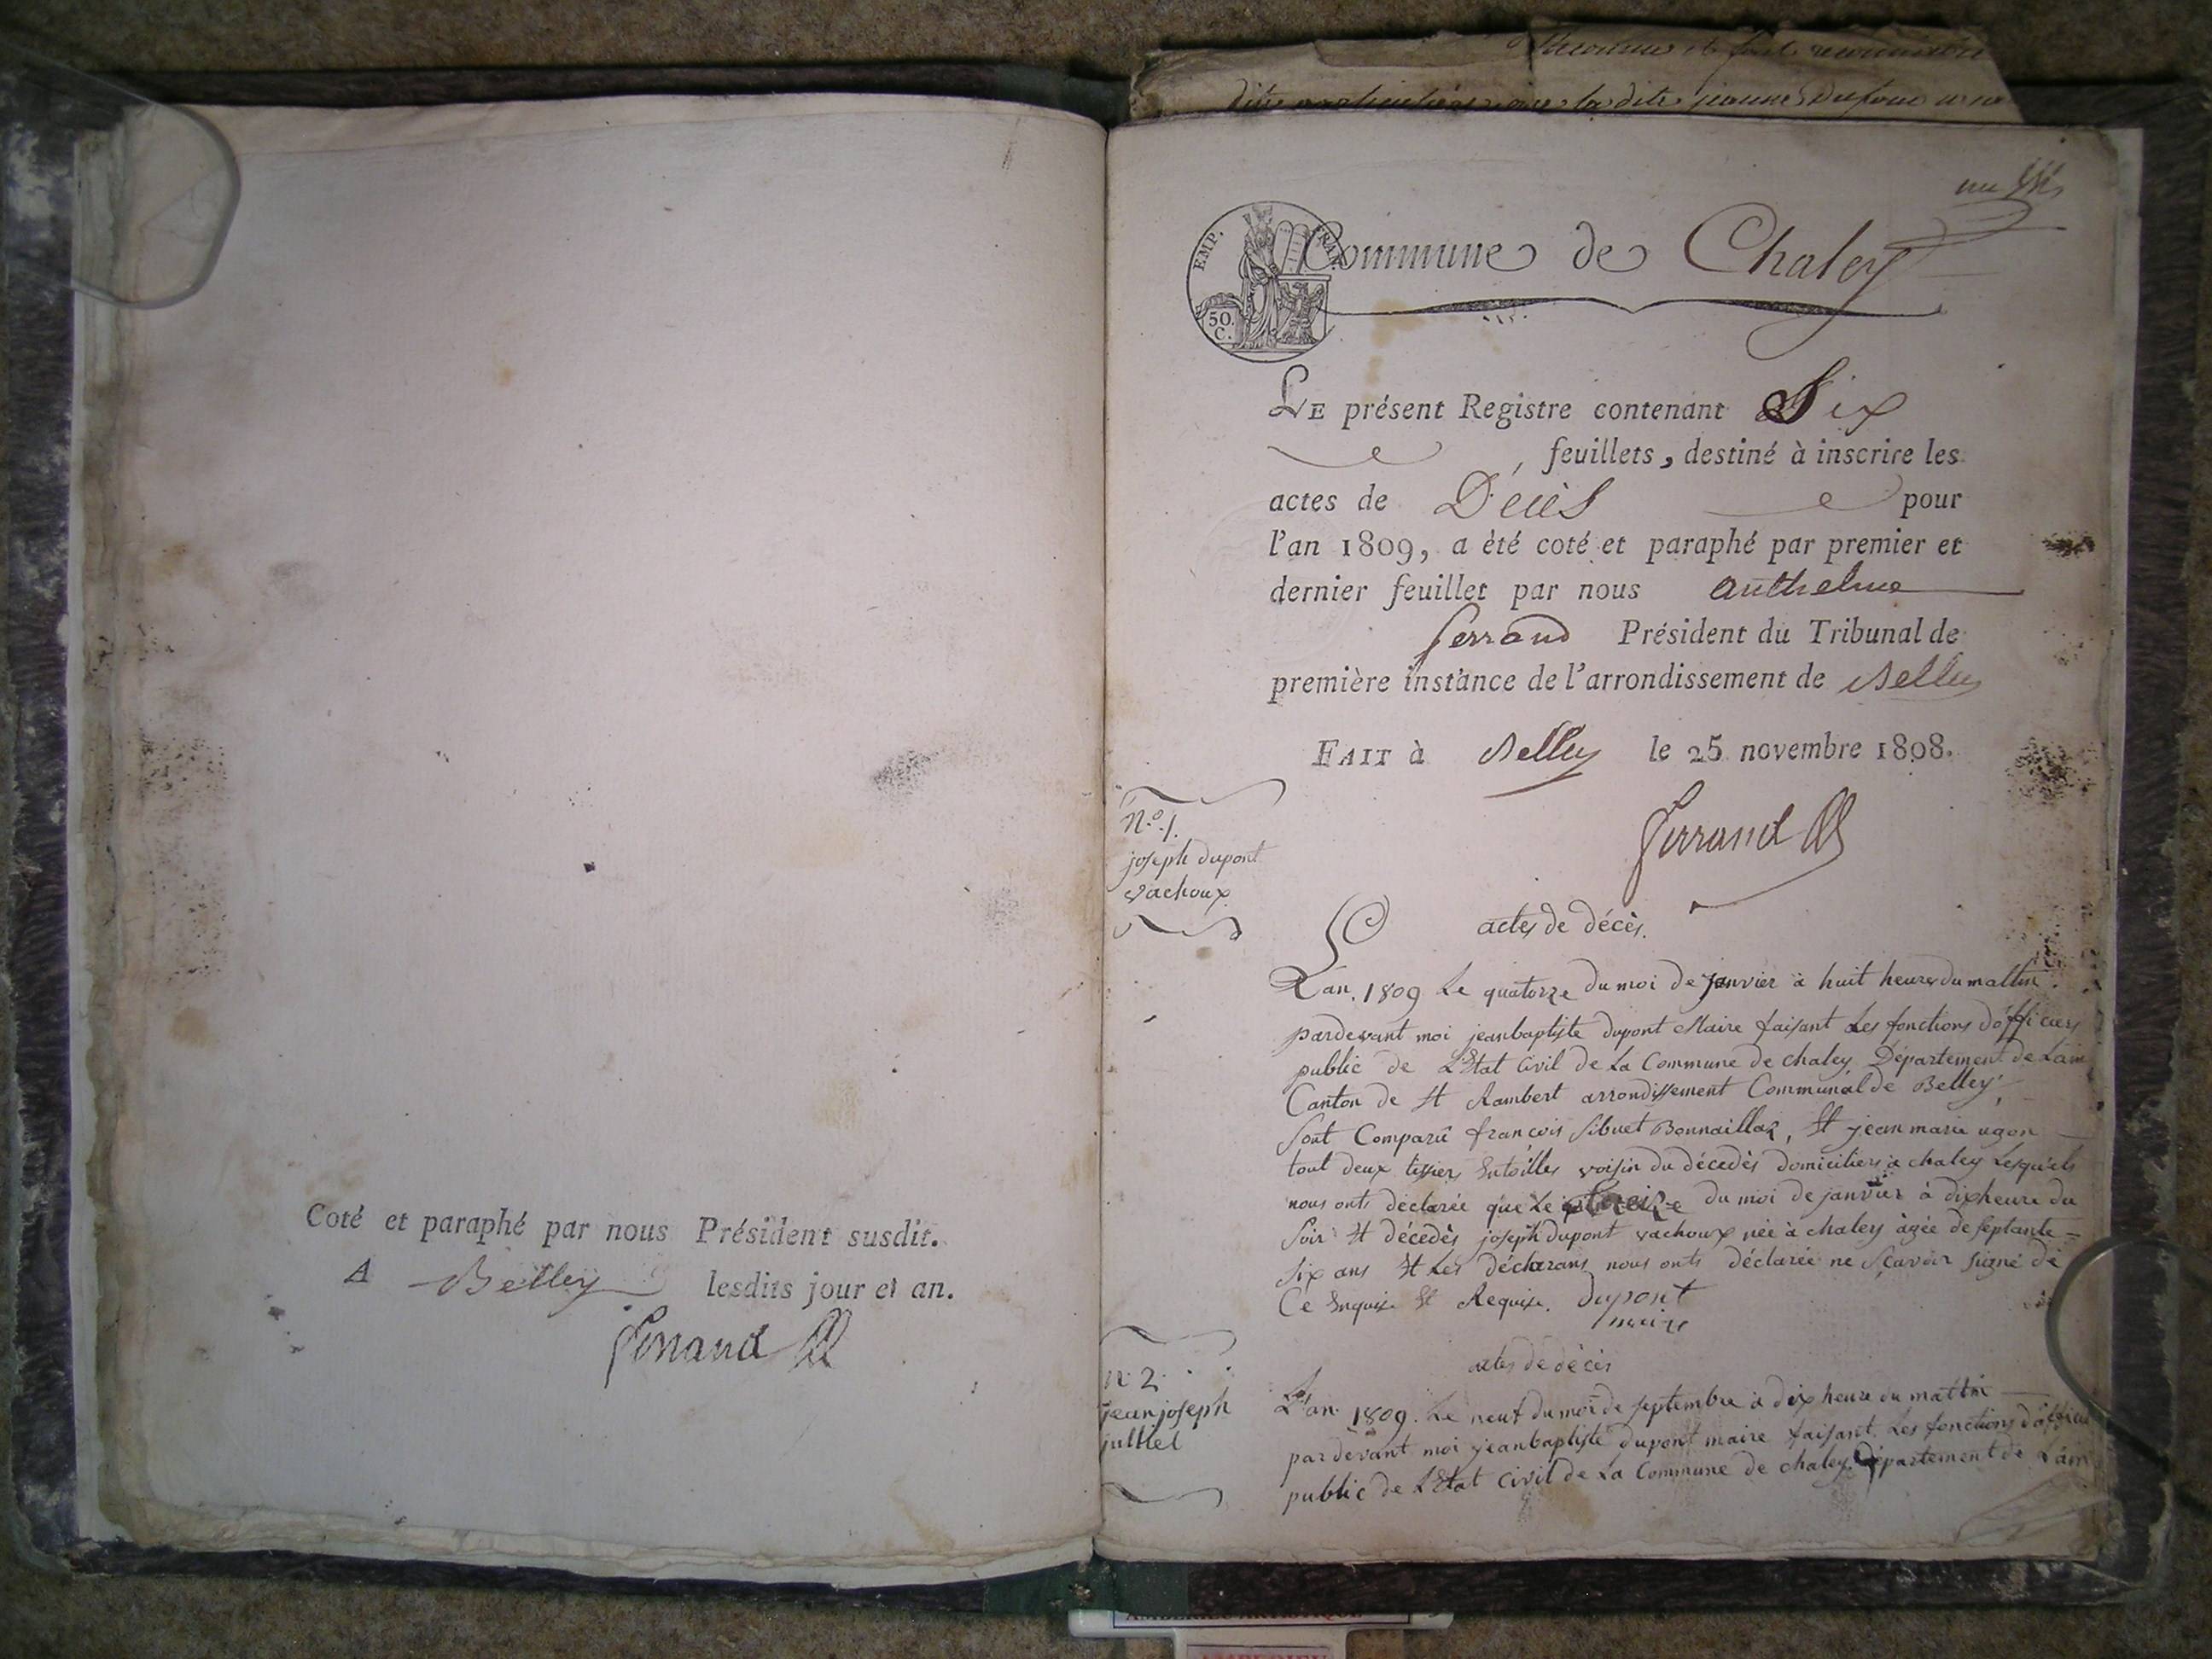 Coté et paraphé par nous Président susdit.
A Belley lesdits jour et an.
Ferrand
dite jeanne Dufour
EMP. FRAN
50.
C.
Commune de Chaley
LE présent Registre contenant Six
feuillets, destiné à inscrire les
actes de Décès pour
l'an 1809, a été coté et paraphé par premier et
dernier feuillet par nous anthelme
ferrand Président du Tribunal de
première instance de l'arrondissement de Belley
FAIT à Belley le 25 novembre 1808.
Ferrand
N.o 1.
joseph dupont
vachoux
actes de décès.
L'an. 1809 Le quatorze du moi de janvier à huit heures du mattin.
pardevant moi jeanbaptiste dupont Maire faisant Les fonctions d'officiers
public de L'Etat Civil de La Commune de chaley Département de L'ain
Canton de St Rambert arrondissement Communal de Belley,
Sont Comparû francois Sibuet Bonnaillaz, Et jean marie ugon
tout deux tissiers Entoilles voisin du décedès domiciliers à chaley Lesquels
nous onts déclarée que Le treize du moi de janvier à dix heure du
Soir Et décedès joseph dupont vachoux née à chaley àgée de septante
Six ans Et Les déclarans nous onts déclarée ne Sçavoir signé de
Ce Enquise Et Requise. dupont
maire
actes de décès
L'an 1809. Le neuf du moi de septembre à dix heure du mattin
pardevant moi jeanbaptiste dupont maire faisant Les fonctions d'officie
public de L'Etat Civil de La Commune de chaley. Département de L'ain
n. 2.
jean joseph
julliet